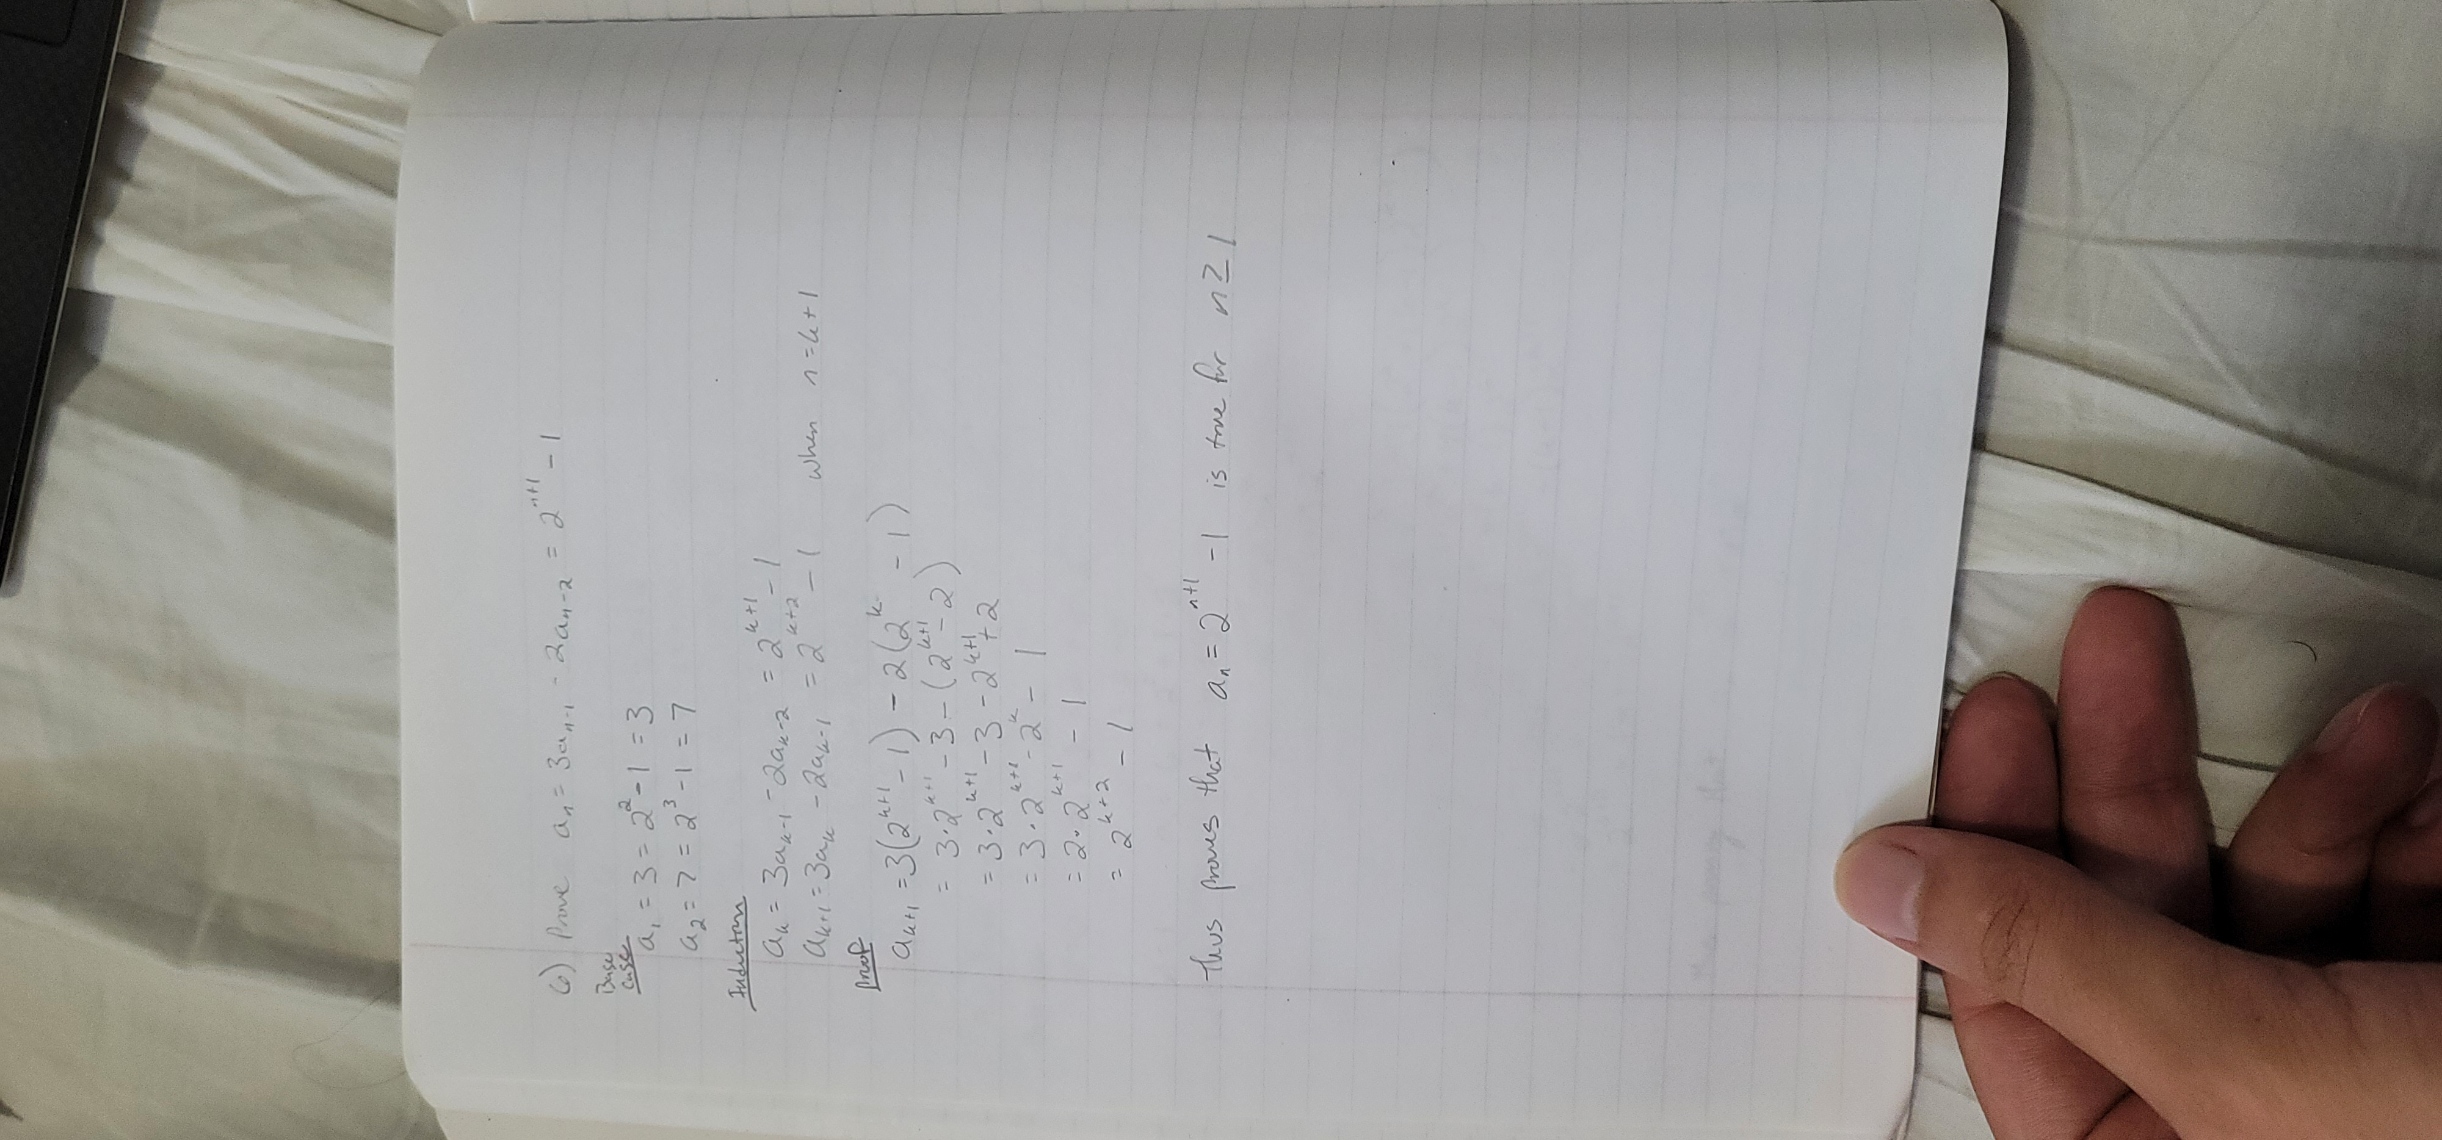 6) Prove aₙ = 3aₙ₋₁ - 2aₙ₋₂ = 2ⁿ⁺¹ - 1
Base
case
a₁ = 3 = 2² - 1 = 3
a₂ = 7 = 2³ - 1 = 7
Induction
aₖ = 3aₖ₋₁ - 2aₖ₋₂ = 2ᵏ⁺¹ - 1
aₖ₊₁ = 3aₖ - 2aₖ₋₁ = 2ᵏ⁺² - 1 when n = k + 1
Proof
aₖ₊₁ = 3(2ᵏ⁺¹ - 1) - 2(2ᵏ - 1)
= 3·2ᵏ⁺¹ - 3 - (2ᵏ⁺¹ - 2)
= 3·2ᵏ⁺¹ - 3 - 2ᵏ⁺¹ + 2
= 3·2ᵏ⁺¹ - 2ᵏ - 1
= 2·2ᵏ⁺¹ - 1
= 2ᵏ⁺² - 1
Thus proves that aₙ = 2ⁿ⁺¹ - 1 is true for n ≥ 1